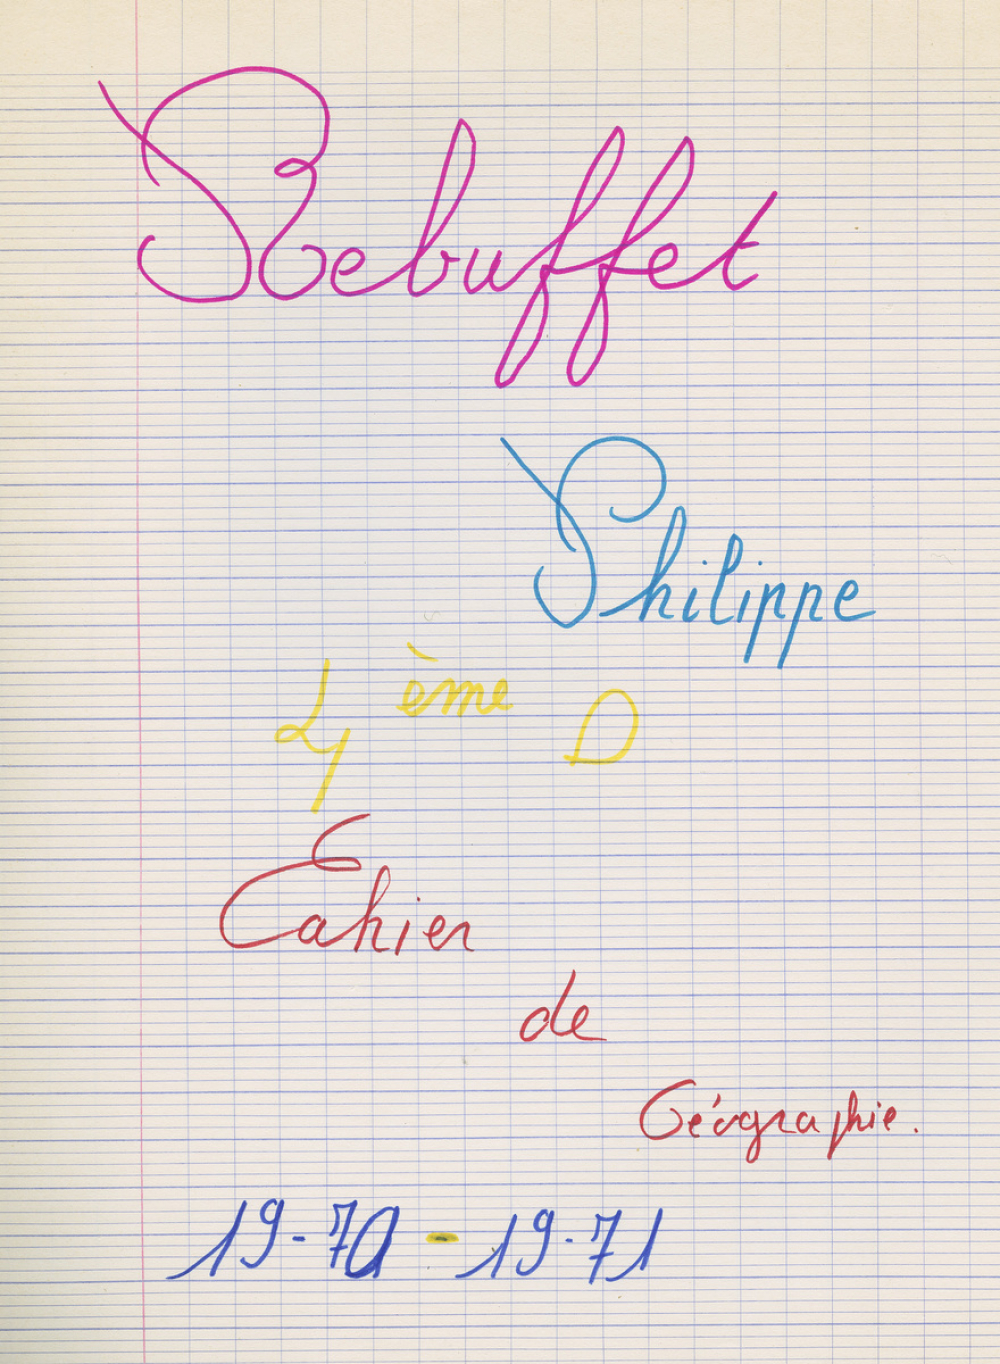 Rebuffet
Philippe
4ème D
Cahier
de
Géographie.
19-70 - 19-71